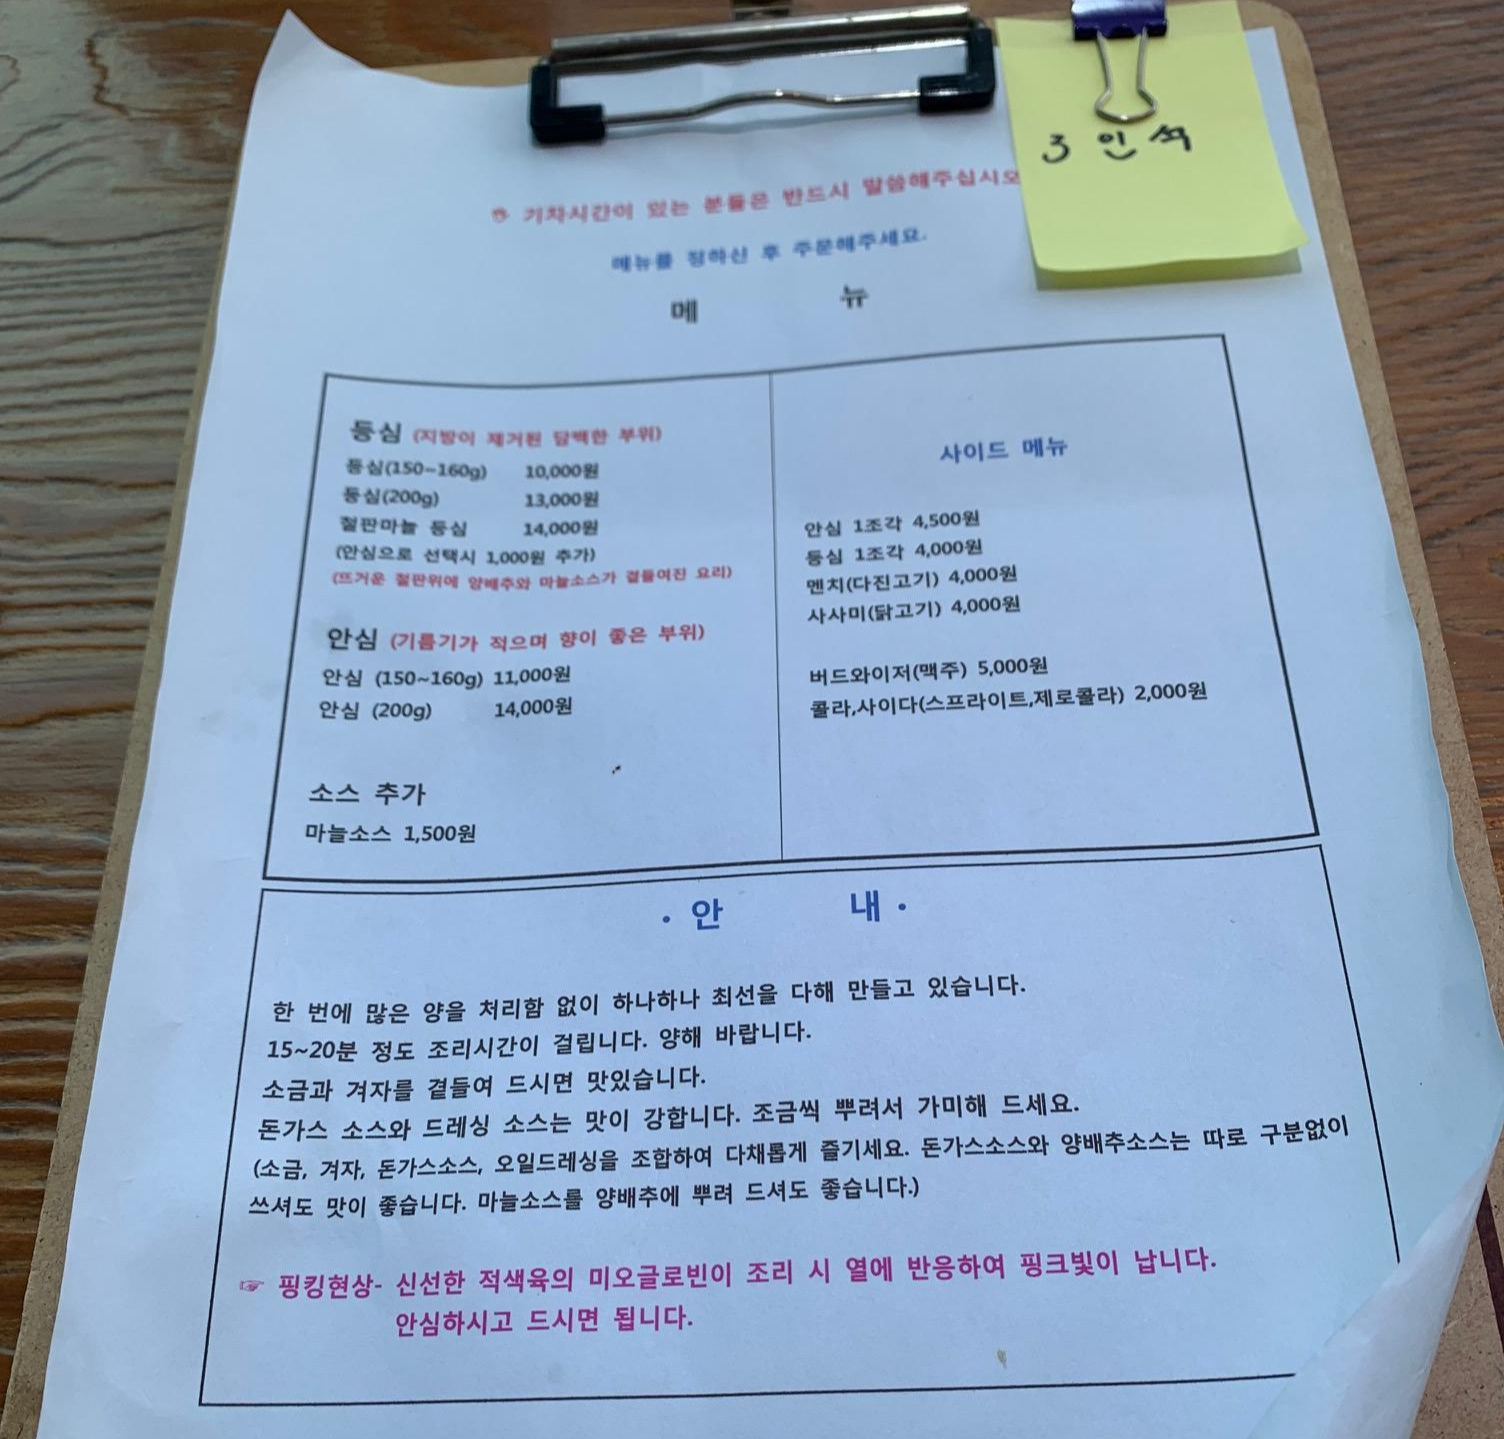 3 인석
☞ 기차시간이 있는 분들은 반드시 말씀해주십시오
메뉴를 정하신 후 주문해주세요.
메 뉴
등심 (지방이 제거된 담백한 부위)
등심(150~160g) 10,000원
등심(200g) 13,000원
철판마늘 등심 14,000원
(안심으로 선택시 1,000원 추가)
(뜨거운 철판위에 양배추와 마늘소스가 곁들여진 요리)
안심 (기름기가 적으며 향이 좋은 부위)
안심 (150~160g) 11,000원
안심 (200g) 14,000원
소스 추가
마늘소스 1,500원
사이드 메뉴
안심 1조각 4,500원
등심 1조각 4,000원
멘치(다진고기) 4,000원
사사미(닭고기) 4,000원
버드와이저(맥주) 5,000원
콜라,사이다(스프라이트,제로콜라) 2,000원
· 안 내 ·
한 번에 많은 양을 처리함 없이 하나하나 최선을 다해 만들고 있습니다.
15~20분 정도 조리시간이 걸립니다. 양해 바랍니다.
소금과 겨자를 곁들여 드시면 맛있습니다.
돈가스 소스와 드레싱 소스는 맛이 강합니다. 조금씩 뿌려서 가미해 드세요.
(소금, 겨자, 돈가스소스, 오일드레싱을 조합하여 다채롭게 즐기세요. 돈가스소스와 양배추소스는 따로 구분없이
쓰셔도 맛이 좋습니다. 마늘소스를 양배추에 뿌려 드셔도 좋습니다.)
☞ 핑킹현상- 신선한 적색육의 미오글로빈이 조리 시 열에 반응하여 핑크빛이 납니다.
안심하시고 드시면 됩니다.